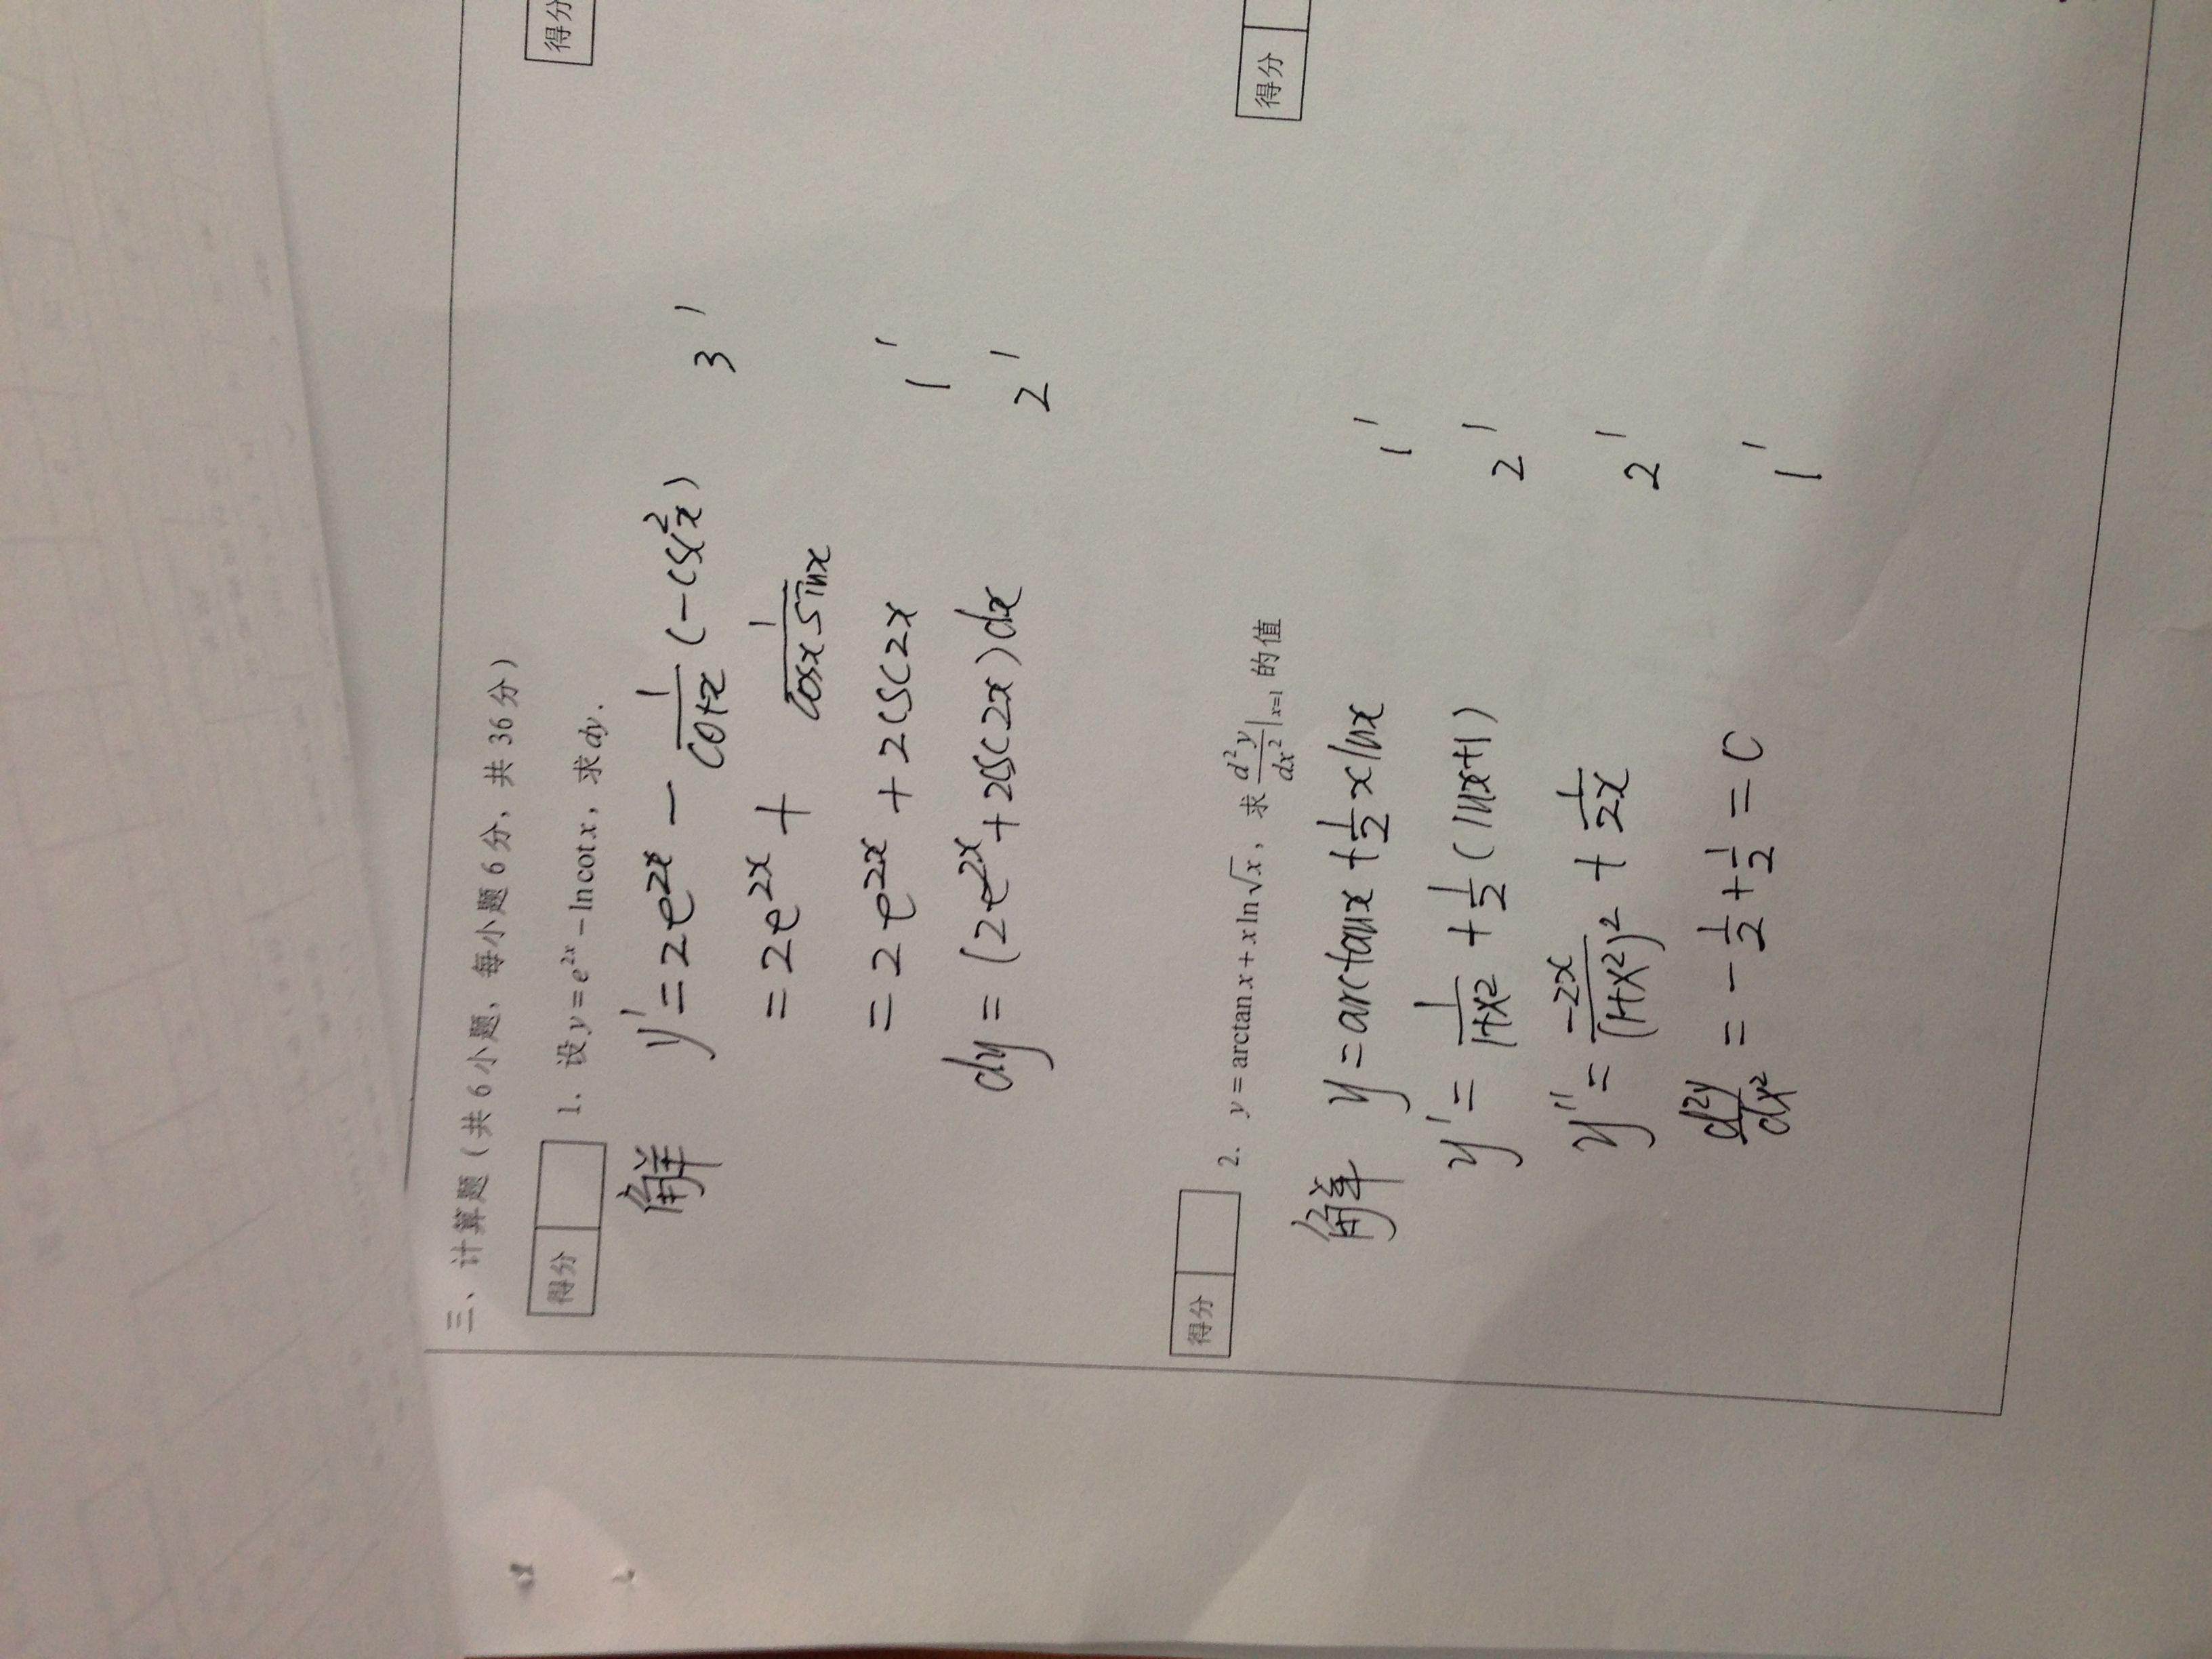 三、计算题（共 6 小题，每小题 6 分，共 36 分）
得分
得分
1. 设 y = e^{2x} − ln cot x，求 dy.
解 y' = 2e^{2x} − \frac{1}{cotx} (−csc^2x) 3'
= 2e^{2x} + \frac{1}{cosx sinx}
= 2e^{2x} + 2csc2x 1'
dy = (2e^{2x} + 2csc2x)dx 2'
得分
得分
2. y = arctan x + x ln √x，求 \frac{d^2y}{dx^2}|_{x=1} 的值
解 y = arctanx + \frac{1}{2} x lnx 1'
y' = \frac{1}{1+x^2} + \frac{1}{2} (lnx+1) 2'
y'' = \frac{-2x}{(1+x^2)^2} + \frac{1}{2x} 2'
\frac{d^2y}{dx^2} = −\frac{1}{2} + \frac{1}{2} = 0 1'